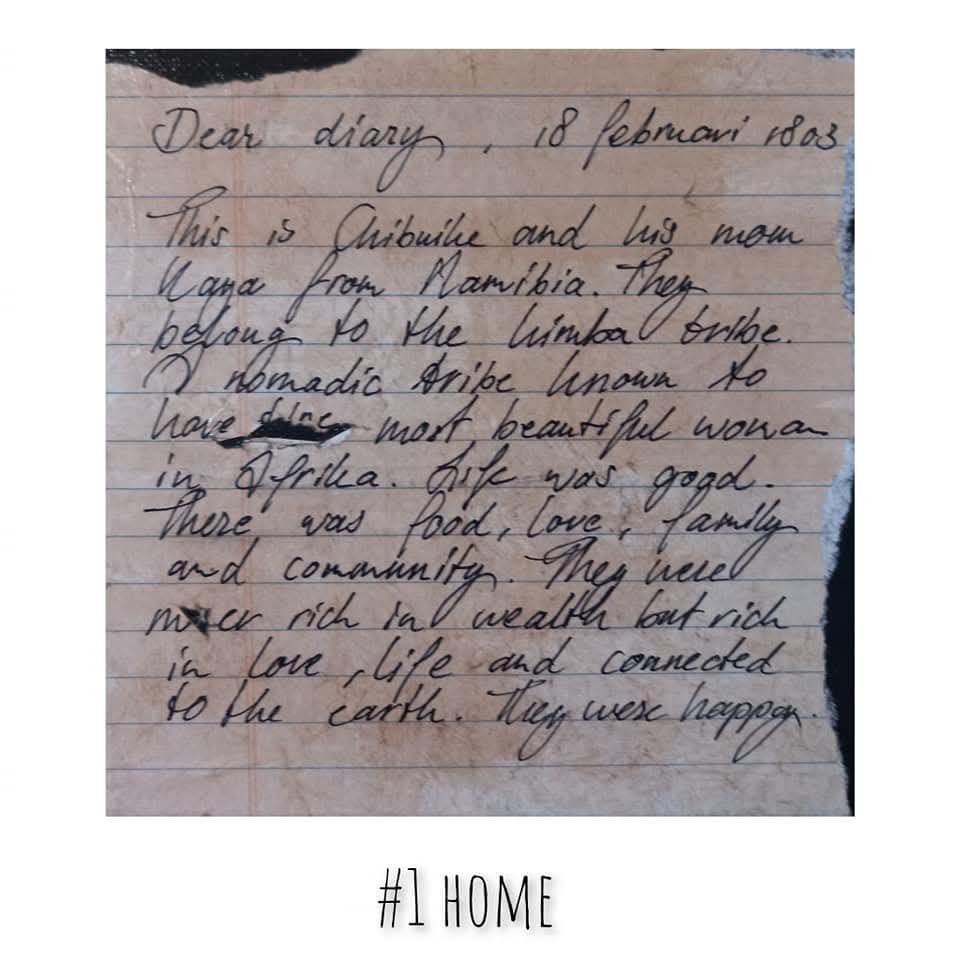 Dear diary, 18 februari 1803
This is Chibuike and his mom
Kaya from Namibia. They
belong to the himba tribe.
nomadic tribe known to
have most beautiful woman
in Afrika. Life was good.
There was food, love, family
and community. They were
never rich in wealth but rich
in love, life and connected
to the earth. They were happy.
#1 HOME